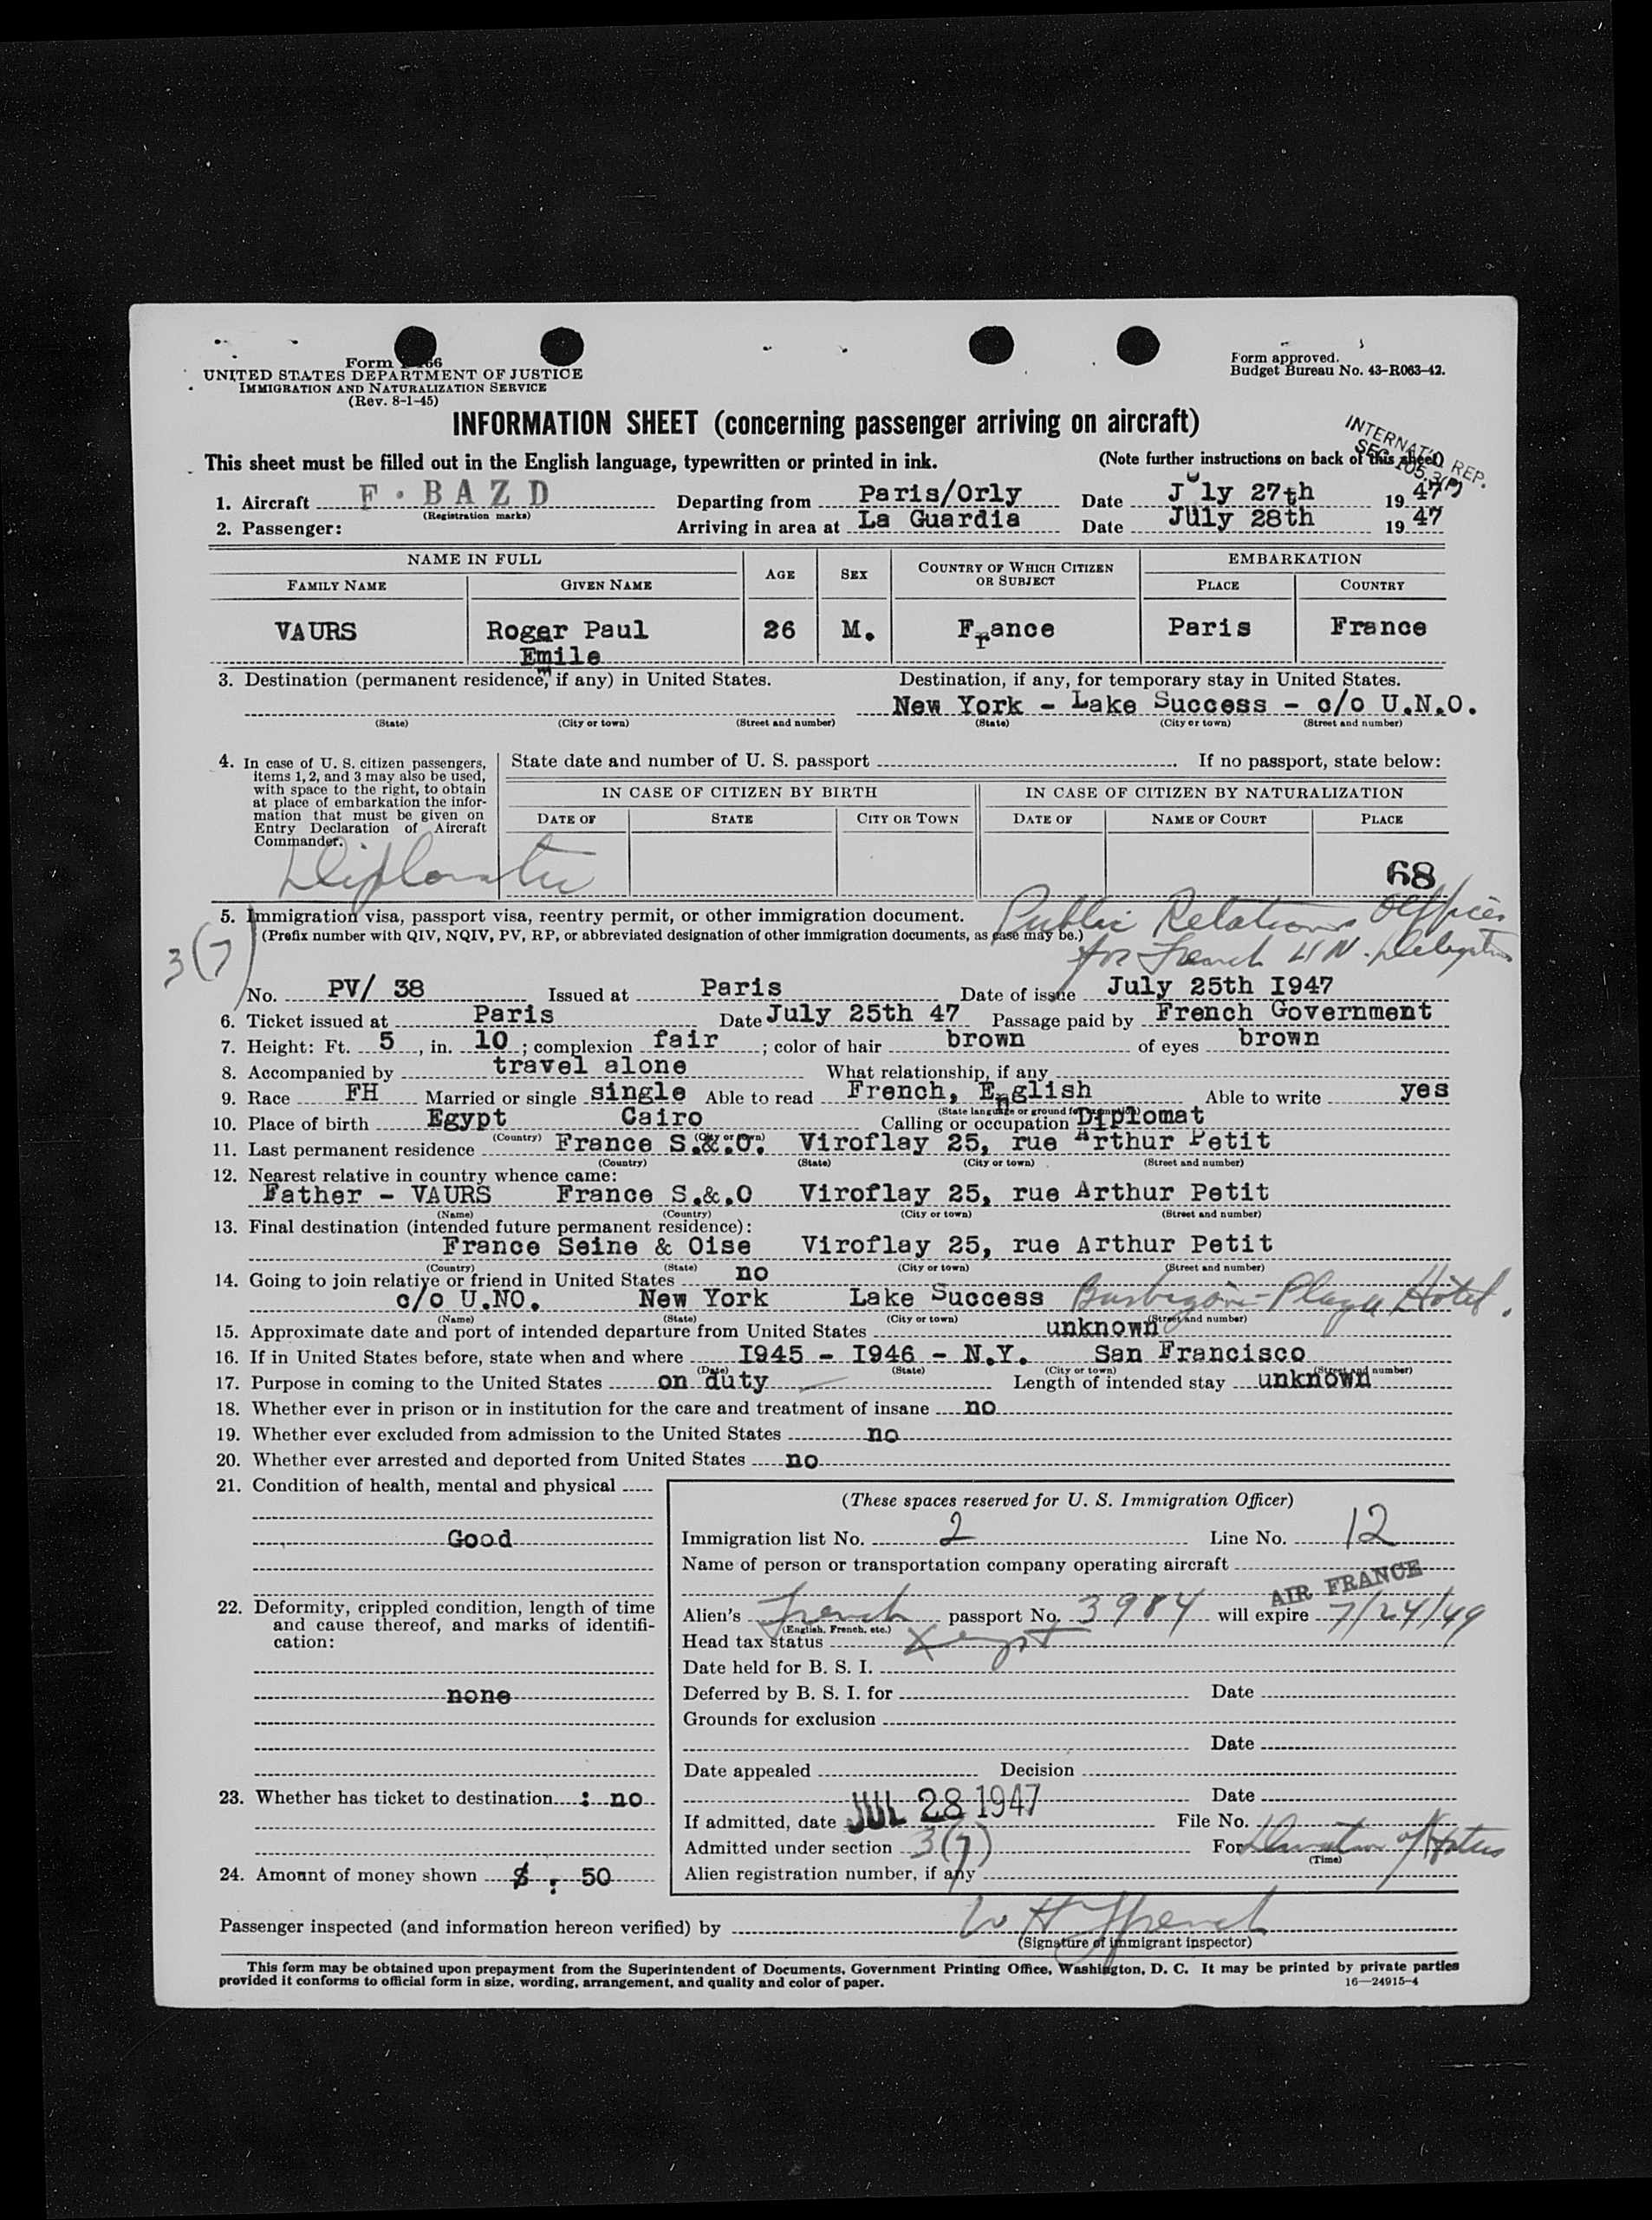 Form I-466
UNITED STATES DEPARTMENT OF JUSTICE
IMMIGRATION AND NATURALIZATION SERVICE
(Rev. 8-1-45)
Form approved.
Budget Bureau No. 43-R063-42.
INFORMATION SHEET (concerning passenger arriving on aircraft)
INTERNAT'L REP.
SEC. 105.3(P)
This sheet must be filled out in the English language, typewritten or printed in ink. (Note further instructions on back of this sheet)
1. Aircraft F·BAZD Departing from Paris/Orly Date July 27th 1947
(Registration marks)
2. Passenger: Arriving in area at La Guardia Date July 28th 1947
NAME IN FULL AGE SEX COUNTRY OF WHICH CITIZEN OR SUBJECT EMBARKATION
FAMILY NAME GIVEN NAME PLACE COUNTRY
VAURS Roger Paul 26 M. France Paris France
Emile
3. Destination (permanent residence, if any) in United States. Destination, if any, for temporary stay in United States.
New York - Lake Success - c/o U.N.O.
(State) (City or town) (Street and number) (State) (City or town) (Street and number)
4. In case of U. S. citizen passengers, items 1, 2, and 3 may also be used, with space to the right, to obtain at place of embarkation the information that must be given on Entry Declaration of Aircraft Commander.
State date and number of U. S. passport If no passport, state below:
IN CASE OF CITIZEN BY BIRTH IN CASE OF CITIZEN BY NATURALIZATION
DATE OF STATE CITY OR TOWN DATE OF NAME OF COURT PLACE
68
5. Immigration visa, passport visa, reentry permit, or other immigration document. Public Relations Officer
(Prefix number with QIV, NQIV, PV, RP, or abbreviated designation of other immigration documents, as case may be.)
for French UN. Delegation
3(7)
No. PV/ 38 Issued at Paris Date of issue July 25th I947
6. Ticket issued at Paris Date July 25th 47 Passage paid by French Government
7. Height: Ft. 5, in. 10; complexion fair; color of hair brown of eyes brown
8. Accompanied by travel alone What relationship, if any
9. Race FH Married or single single Able to read French, English Able to write yes
(State language or ground for exemption)
10. Place of birth Egypt Cairo Calling or occupation Diplomat
(Country) (City or town)
11. Last permanent residence France S.&.O. Viroflay 25, rue Arthur Petit
(Country) (State) (City or town) (Street and number)
12. Nearest relative in country whence came:
Father - VAURS France S.&.O Viroflay 25, rue Arthur Petit
(Name) (Country) (City or town) (Street and number)
13. Final destination (intended future permanent residence):
France Seine & Oise Viroflay 25, rue Arthur Petit
(Country) (State) (City or town) (Street and number)
14. Going to join relative or friend in United States no
c/o U.NO. New York Lake Success Plaza Hotel.
(Name) (State) (City or town) (Street and number)
15. Approximate date and port of intended departure from United States unknown
16. If in United States before, state when and where I945 - I946 - N.Y. San Francisco
(Date) (State) (City or town) (Street and number)
17. Purpose in coming to the United States on duty Length of intended stay unknown
18. Whether ever in prison or in institution for the care and treatment of insane no
19. Whether ever excluded from admission to the United States no
20. Whether ever arrested and deported from United States no
21. Condition of health, mental and physical
Good
22. Deformity, crippled condition, length of time and cause thereof, and marks of identification:
none
23. Whether has ticket to destination : no
24. Amount of money shown $ : 50
(These spaces reserved for U. S. Immigration Officer)
Immigration list No. 2 Line No. 12
Name of person or transportation company operating aircraft
AIR FRANCE
Alien's French passport No. 3984 will expire 7/24/49
(English, French, etc.)
Head tax status
Date held for B. S. I.
Deferred by B. S. I. for Date
Grounds for exclusion
Date
Date appealed Decision
Date
If admitted, date JUL 28 1947 File No.
Admitted under section 3(7) For Duration of Status
(Time)
Alien registration number, if any
Passenger inspected (and information hereon verified) by W H French
(Signature of immigrant inspector)
This form may be obtained upon prepayment from the Superintendent of Documents, Government Printing Office, Washington, D. C. It may be printed by private parties
provided it conforms to official form in size, wording, arrangement, and quality and color of paper. 16—24915-4